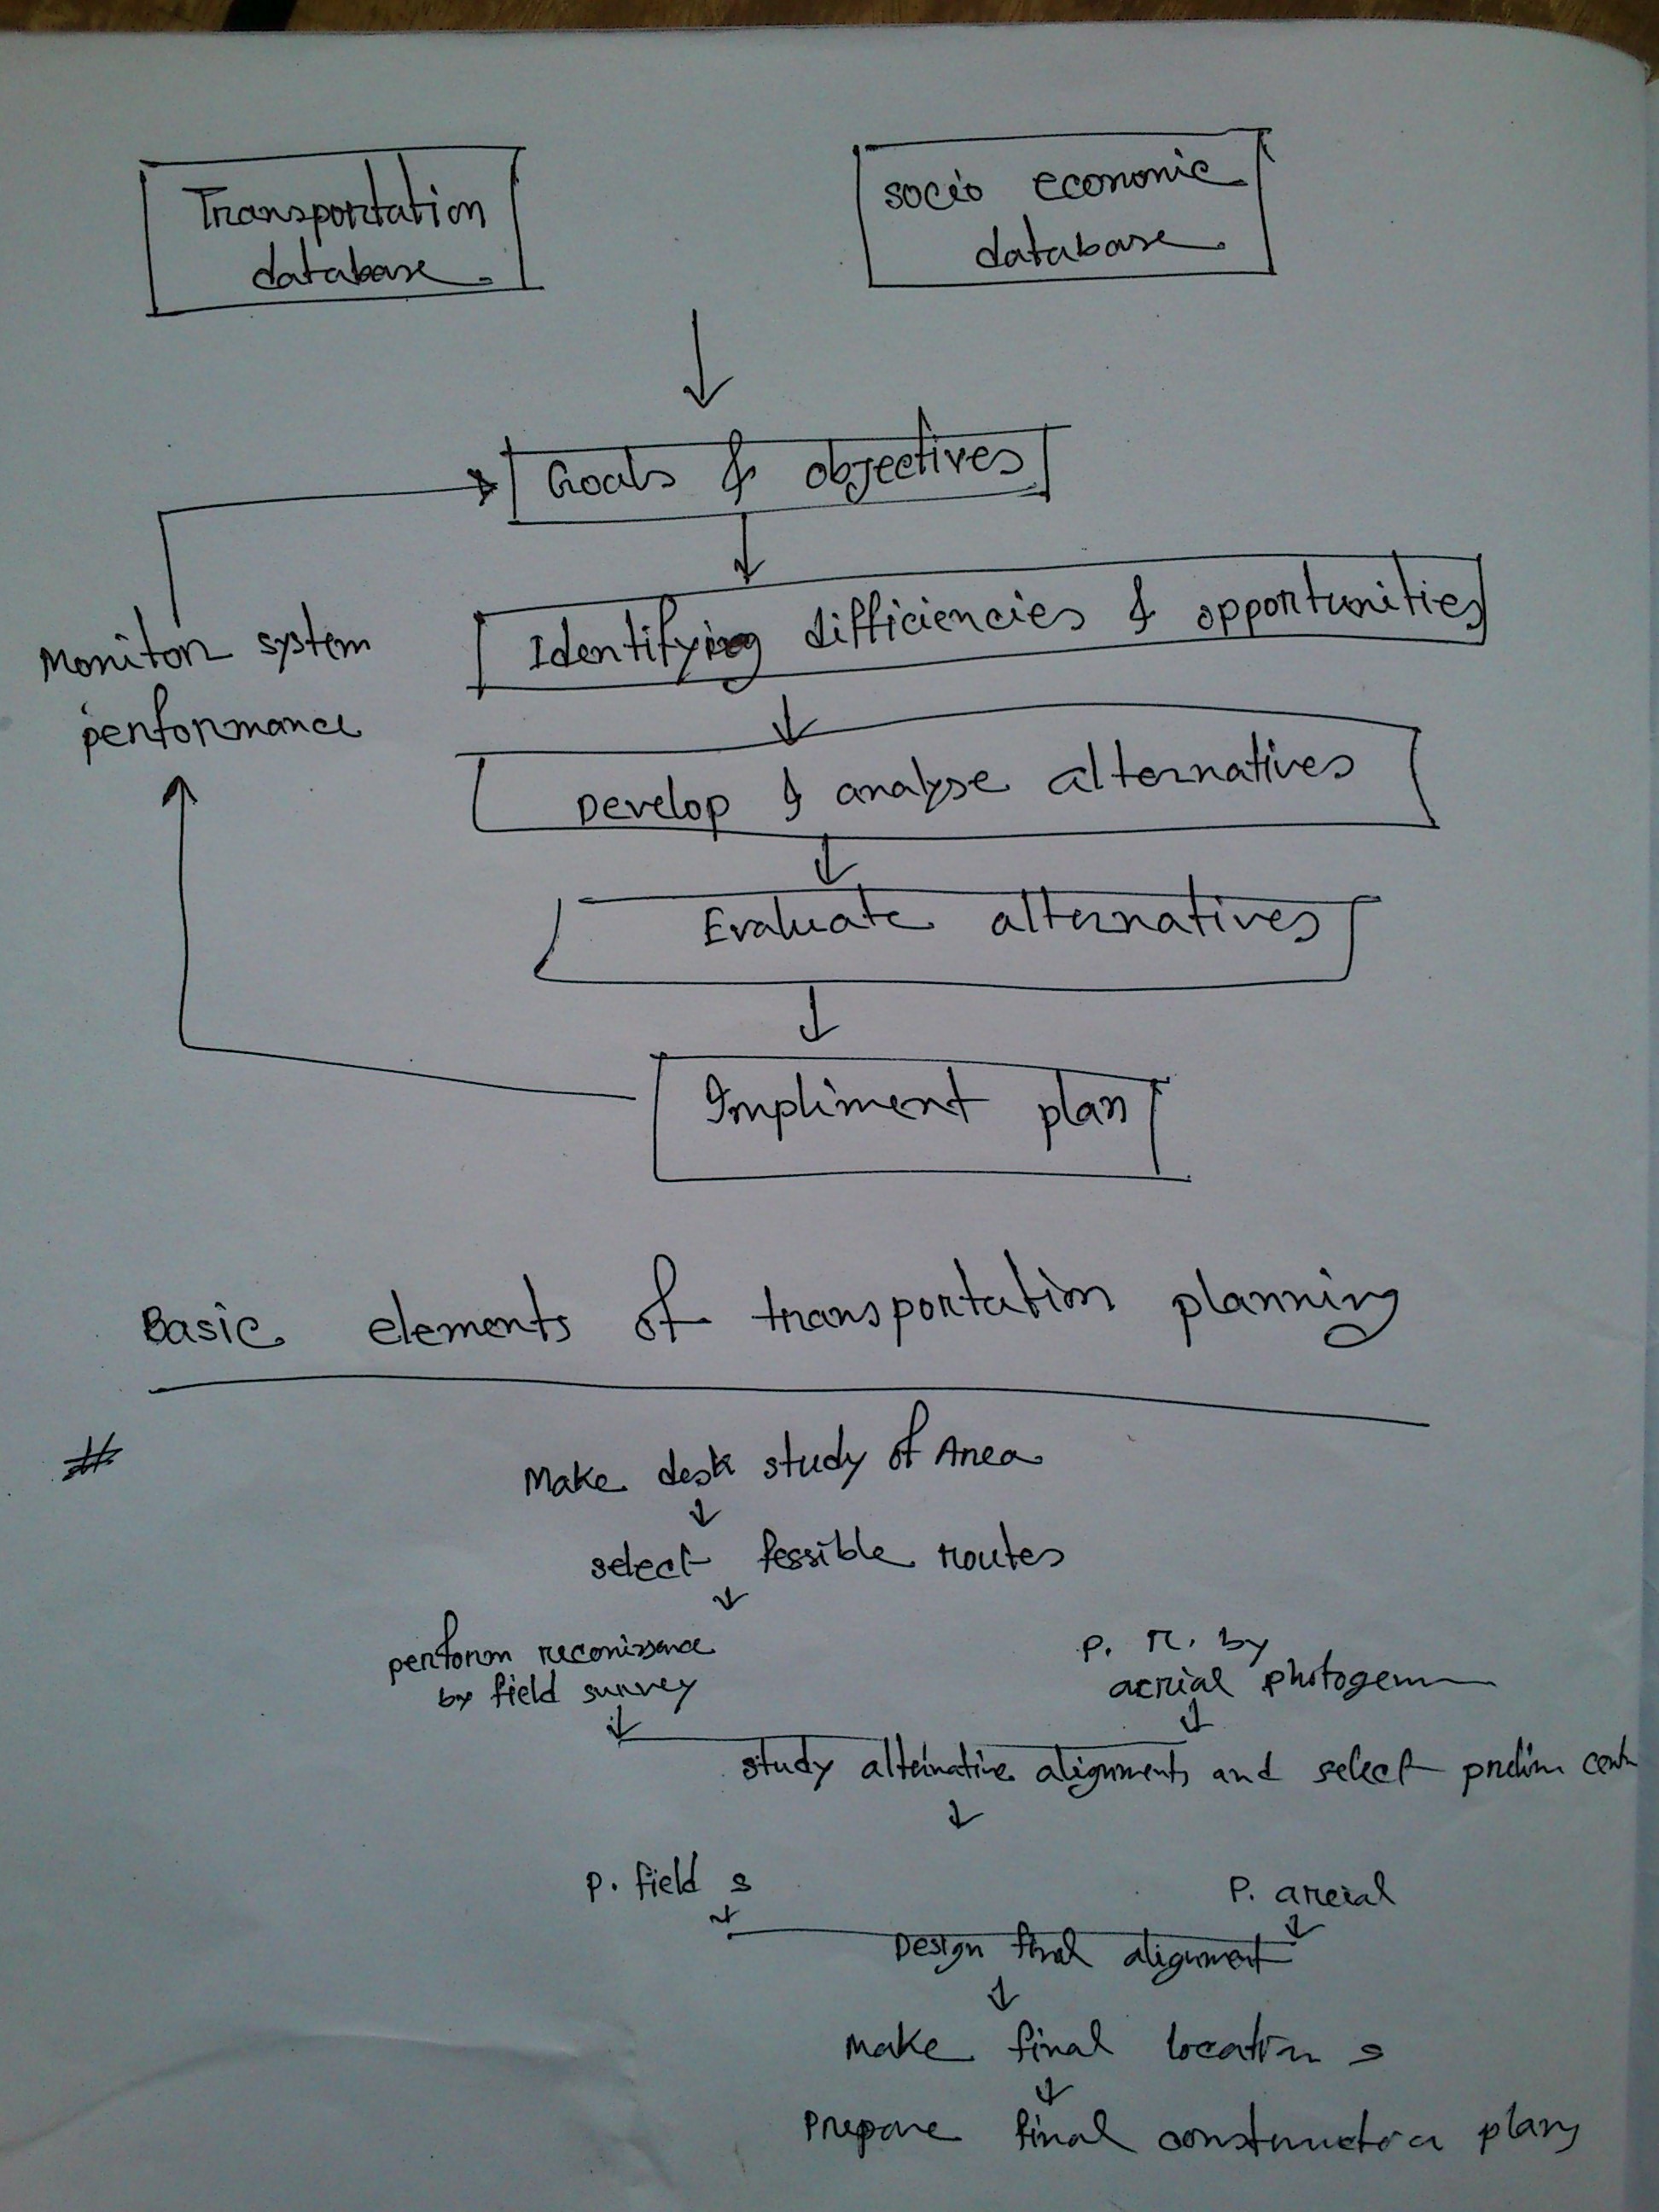 Transportation
database
socio economic
database
Goals & objectives
Identifying difficiencies & opportunities
Monitor system
performance
Develop & analyse alternatives
Evaluate alternatives
Impliment plan
Basic elements of transportation planning
#
Make desk study of Area
select fessible routes
perform reconissance
by field survey
P. r. by
aerial photogem
study alternative alignments and select prelim cent
P. field s
P. areial
Design final alignment
Make final location s
Prepare final construction plans